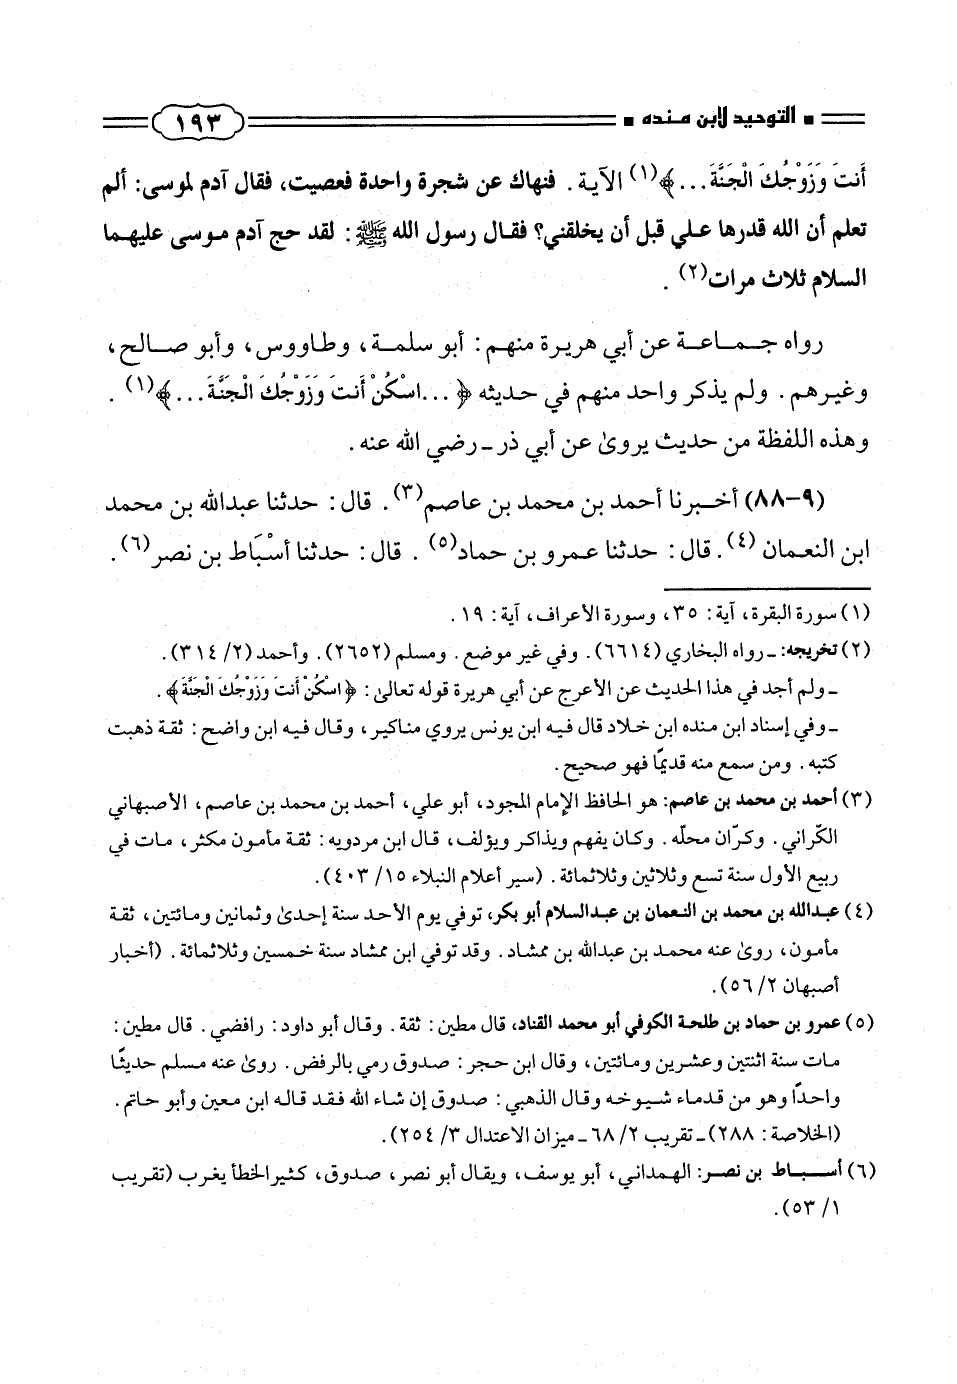 ■ التوحيد لابن منده ■ ١٩٣
أَنتَ وَزَوْجُكَ الْجَنَّةَ...﴾(١) الآية. فنهاك عن شجرة واحدة فعصيت، فقال آدم لموسى: ألم
تعلم أن الله قدرها علي قبل أن يخلقني؟ فقال رسول الله ﷺ: لقد حج آدم موسى عليهما
السلام ثلاث مرات(٢).
رواه جماعة عن أبي هريرة منهم: أبو سلمة، وطاووس، وأبو صالح،
وغيرهم. ولم يذكر واحد منهم في حديثه ﴿...اسْكُنْ أَنتَ وَزَوْجُكَ الْجَنَّةَ...﴾(١).
وهذه اللفظة من حديث يروىٰ عن أبي ذر ـ رضي الله عنه.
(٩-٨٨) أخبرنا أحمد بن محمد بن عاصم(٣). قال: حدثنا عبدالله بن محمد
ابن النعمان (٤). قال: حدثنا عمرو بن حماد(٥). قال: حدثنا أسْبَاط بن نصر(٦).
(١) سورة البقرة، آية: ٣٥، وسورة الأعراف، آية: ١٩.
(٢) تخريجه: ـ رواه البخاري (٦٦١٤). وفي غير موضع. ومسلم (٢٦٥٢). وأحمد (٢/ ٣١٤).
ـ ولم أجد في هذا الحديث عن الأعرج عن أبي هريرة قوله تعالىٰ: ﴿اسْكُنْ أَنتَ وَزَوْجُكَ الْجَنَّةَ﴾.
ـ وفي إسناد ابن منده ابن خلاد قال فيه ابن يونس يروي مناكير، وقال فيه ابن واضح: ثقة ذهبت
كتبه. ومن سمع منه قديمًا فهو صحيح.
(٣) أحمد بن محمد بن عاصم: هو الحافظ الإمام المجود، أبو علي، أحمد بن محمد بن عاصم، الأصبهاني
الكّراني. وكرّان محلّه. وكان يفهم ويذاكر ويؤلف، قال ابن مردويه: ثقة مأمون مكثر، مات في
ربيع الأول سنة تسع وثلاثين وثلاثمائة. (سير أعلام النبلاء ١٥/ ٤٠٣).
(٤) عبدالله بن محمد بن النعمان بن عبدالسلام أبو بكر، توفي يوم الأحد سنة إحدىٰ وثمانين ومائتين، ثقة
مأمون، روىٰ عنه محمد بن عبدالله بن ممشاد. وقد توفي ابن ممشاد سنة خمسين وثلاثمائة. (أخبار
أصبهان ٢/ ٥٦).
(٥) عمرو بن حماد بن طلحة الكوفي أبو محمد القناد، قال مطين: ثقة. وقال أبو داود: رافضي. قال مطين:
مات سنة اثنتين وعشرين ومائتين، وقال ابن حجر: صدوق رمي بالرفض. روىٰ عنه مسلم حديثًا
واحداً وهو من قدماء شيوخه وقال الذهبي: صدوق إن شاء الله فقد قاله ابن معين وأبو حاتم.
(الخلاصة: ٢٨٨) ـ تقريب ٢/ ٦٨ ـ ميزان الاعتدال ٣/ ٢٥٤).
(٦) أسباط بن نصر: الهمداني، أبو يوسف، ويقال أبو نصر، صدوق، كثير الخطأ يغرب (تقريب
١/ ٥٣).